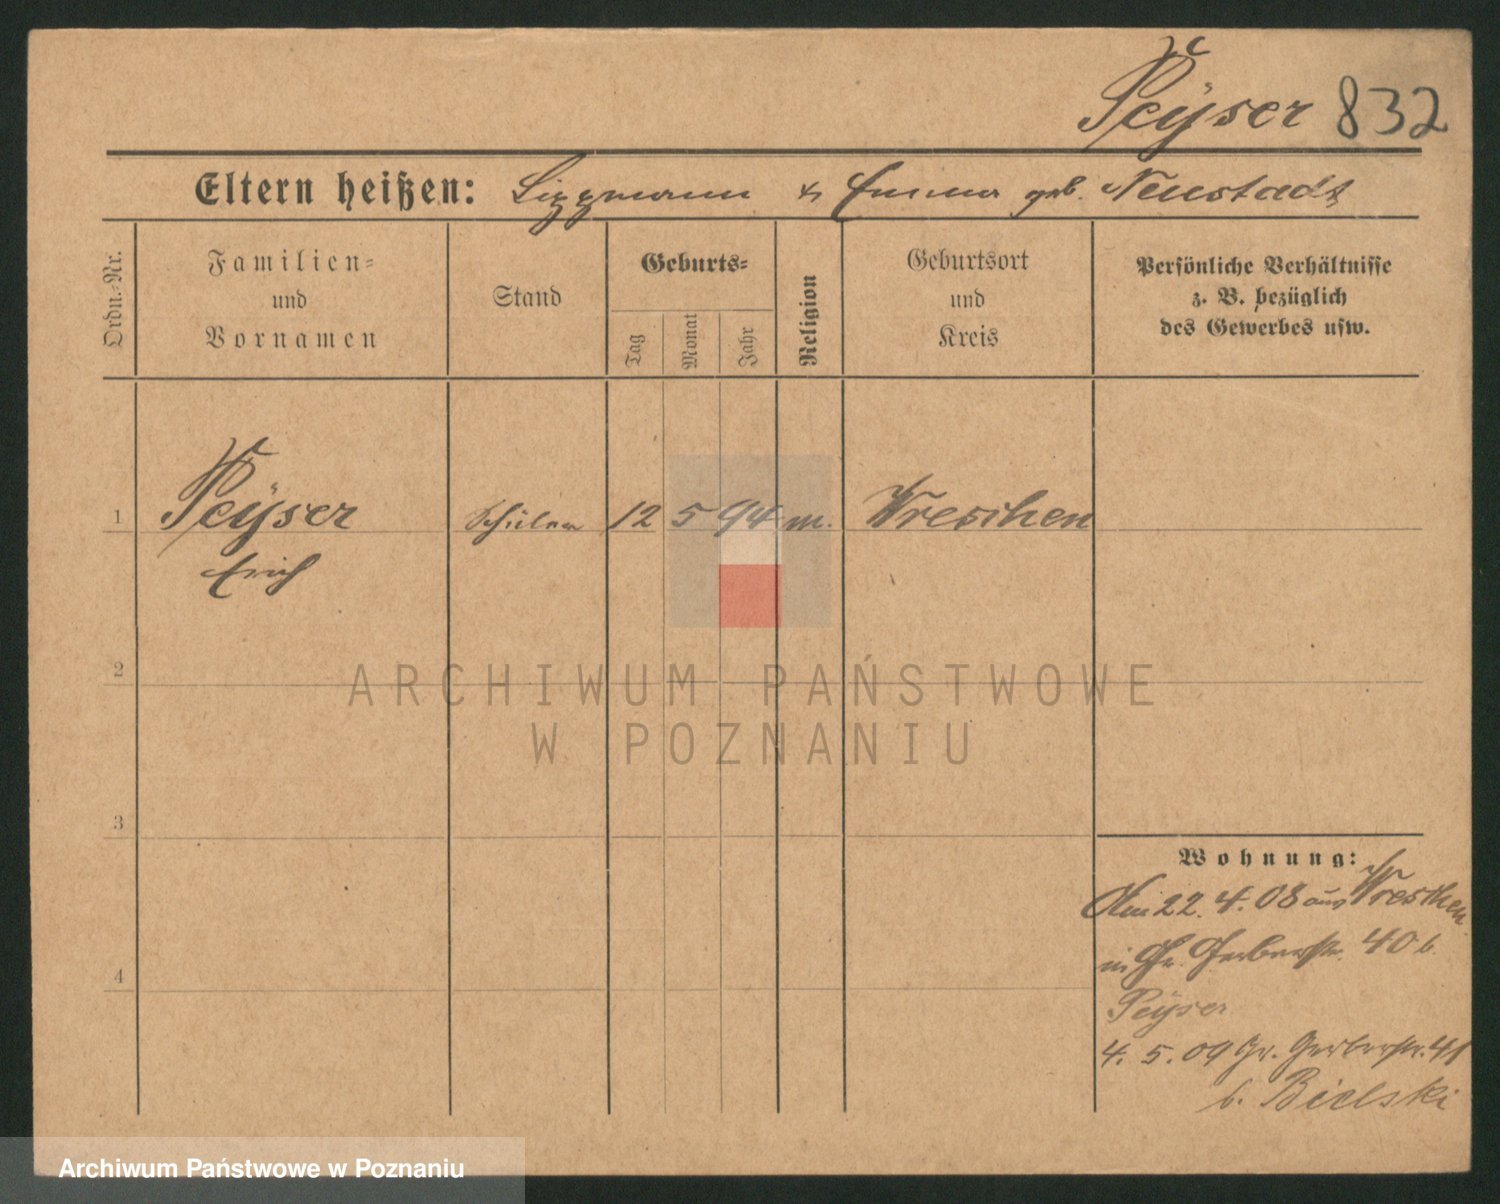 Peÿser 832
Eltern heißen: Lizzmann & Emma geb. Neustadt
Ordn.-Nr.
Familien-
und
Vornamen
Stand
Geburts-
Tag
Monat
Jahr
Religion
Geburtsort
und
Kreis
Persönliche Verhältnisse
z. B. bezüglich
des Gewerbes usw.
1 Peÿser Schüler 12 5 94 m. Wreschen
Erich
2
3
4
Wohnung:
Am 22. 4. 08 aus Wreschen
in Gr. Gerberstr. 40 b.
Peÿser
4. 5. 09 Gr. Gerberstr. 41
b. Bielski
ARCHIWUM PAŃSTWOWE
W POZNANIU
Archiwum Państwowe w Poznaniu